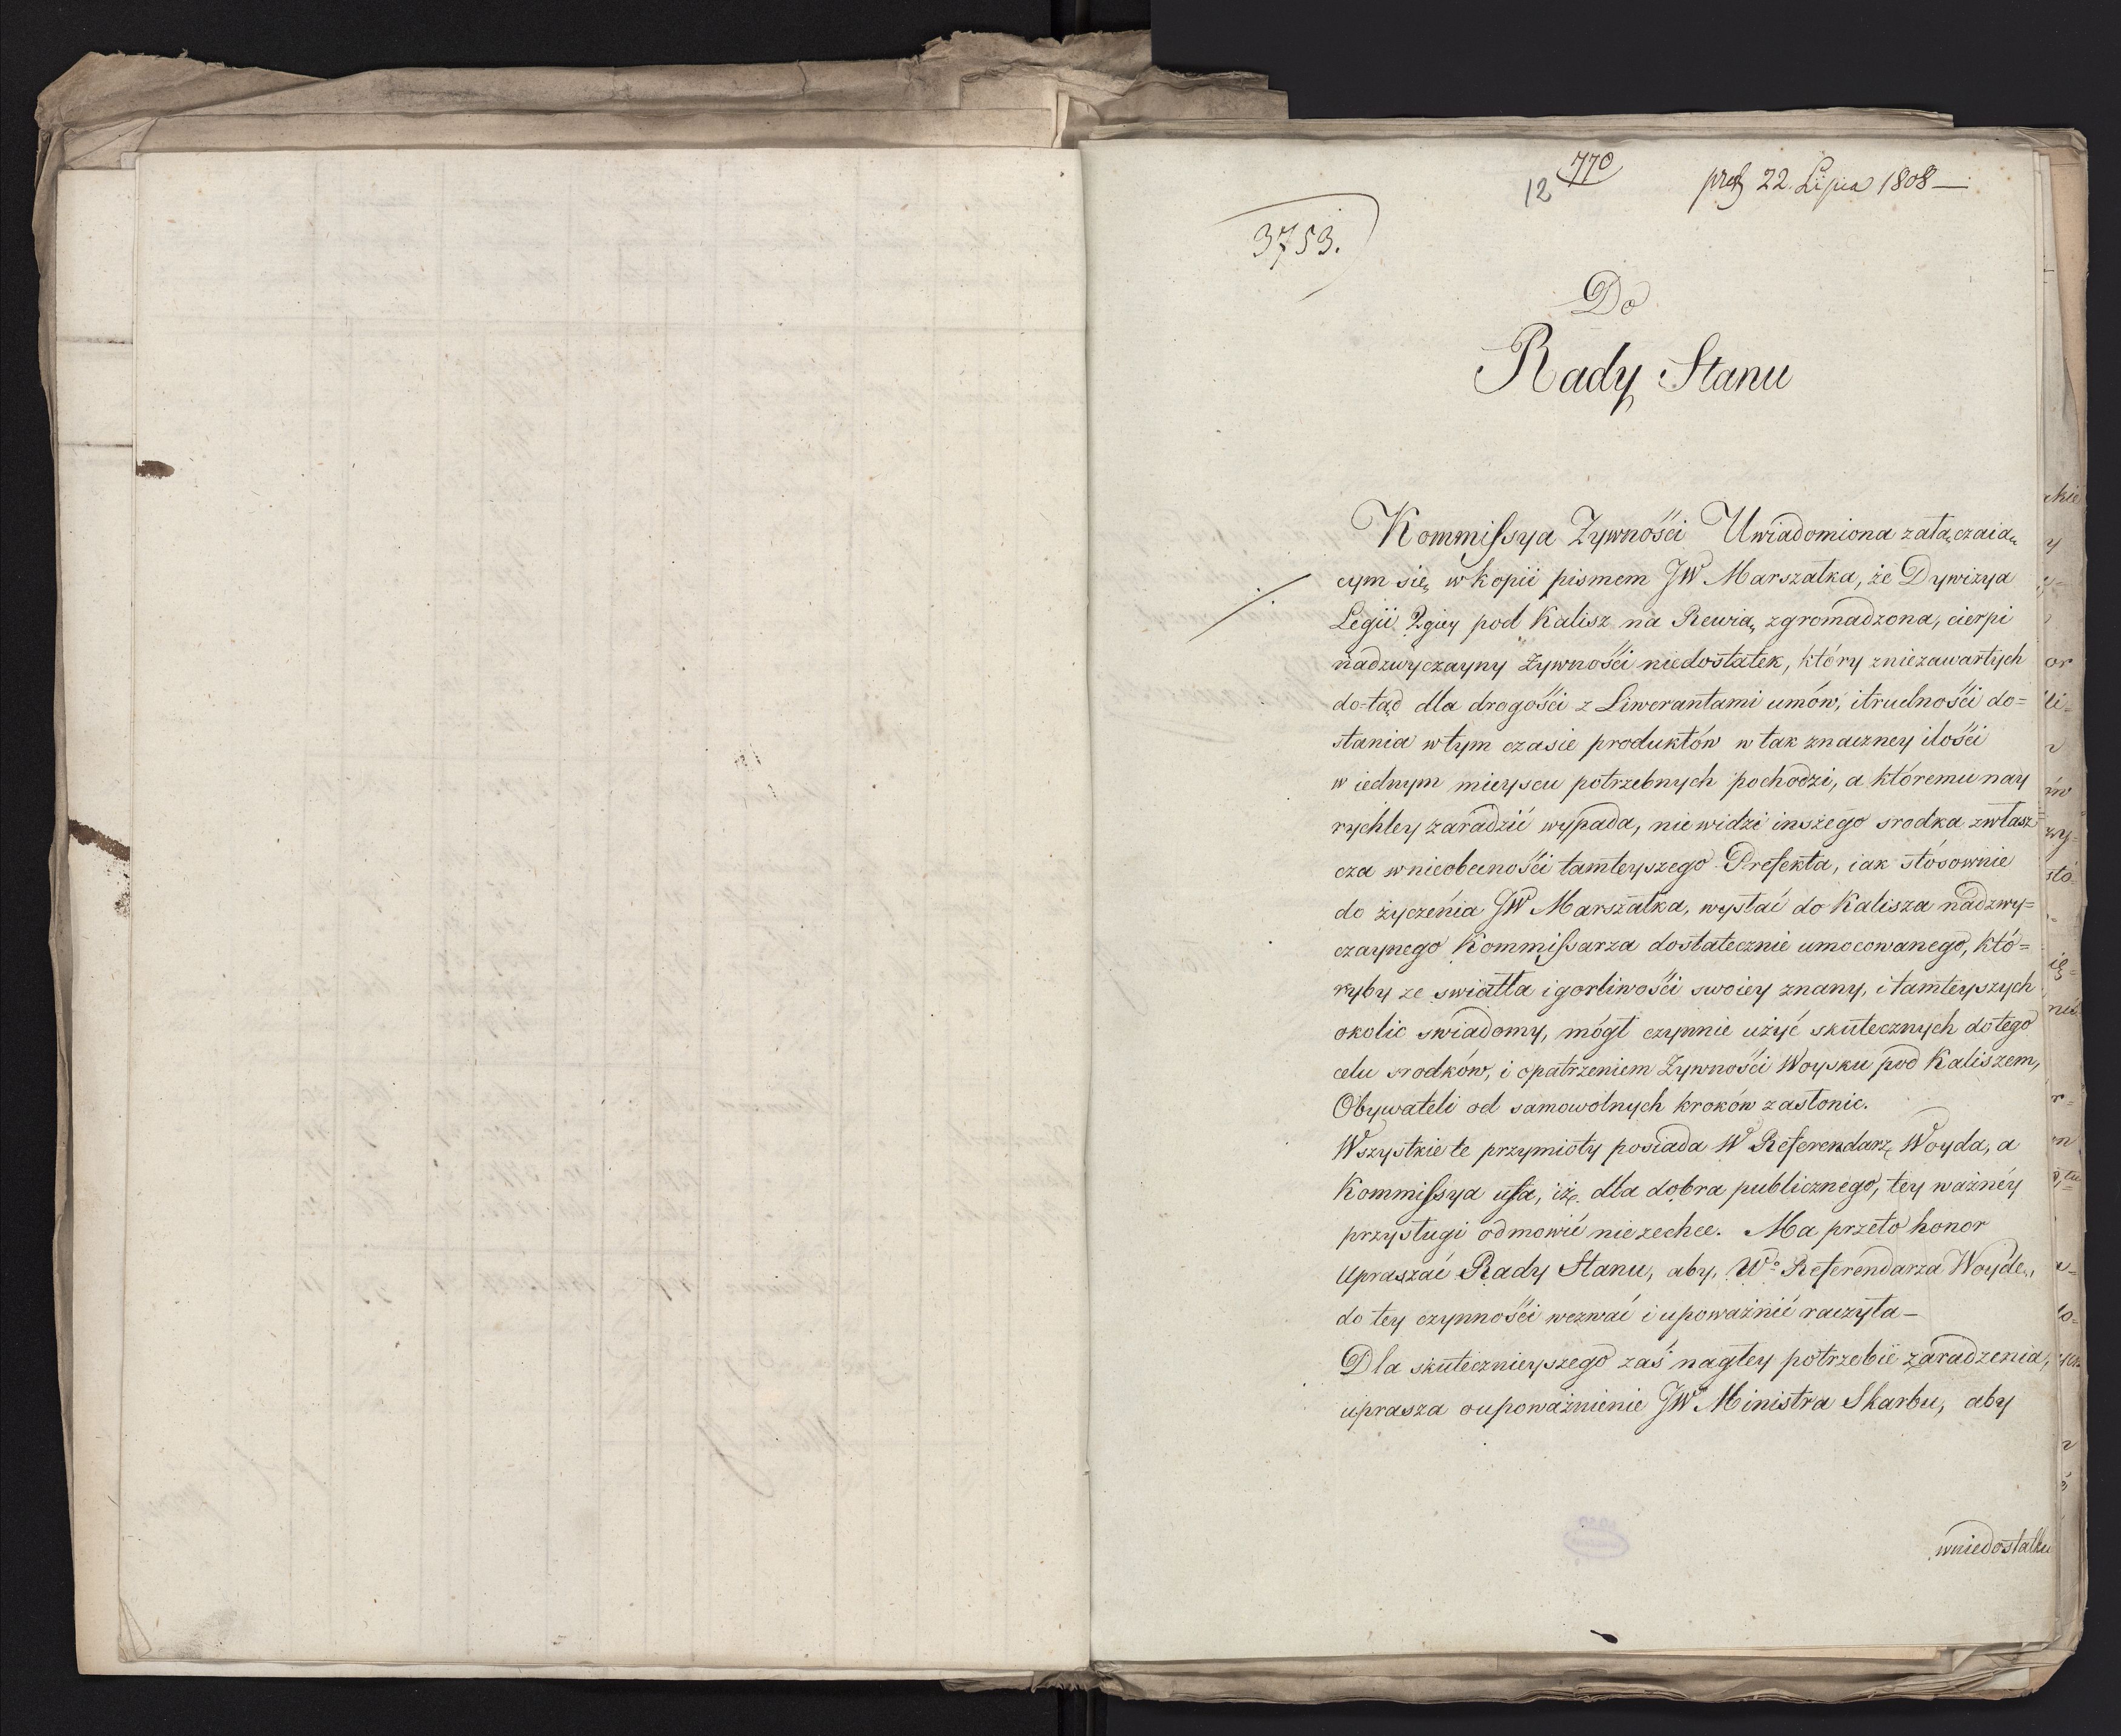 770
12
pres 22. Lipca 1808 —
3753.
Do
Rady Stanu
Kommissya Zywnośći Uwiadomiona załączaią
cym się w kopii pismem JW Marszałka, że Dywizya
Legii 2giey pod Kalisz na Rewią zgromadzona, cierpi
nadzwyczayny żywnośći niedostatek, który zniezawartych
do=tąd dla drogośći z Liwerantami umów, itrudnośći do=
stania wtym czasie produktów w tak znaczney ilośći
w iednym mieyscu potrzebnych pochodzi, a któremu nay
rychley zaradzić wypada, nie widzi inszego srodka zwłasz=
cza wnieobecnośći tamteyszego Prefekta, iak stósownie
do życzenia JW Marszałka, wysłać do Kalisza nadzwy=
czaynego Kommissarza dostatecznie umocowanego, któ=
ryby ze swiatła igorliwośći swoiey znany, i tamteyszych
okolic swiadomy, mógł czynnie użyć skutecznych dotego
celu srodków, i opatrzeniem Zywnośći Woysku pod Kaliszem,
Obywateli od samowolnych kroków zasłonic.
Wszystkie te przymioty posiada W Referendarz Woyda, a
Kommissya ufa, iż dla dobra publicznego, tey ważnéy
przysługi odmowić niezechce. Ma przeto honor
Upraszać Rady Stanu, aby, Wo Referendarza Woydę,
do tey czynnośći wezwać i upoważnić raczyła—
Dla skutecznieyszego zaś nagłey potrzebie zaradzenia,
uprasza oupoważnienie JW Ministra Skarbu, aby
wniedostatku